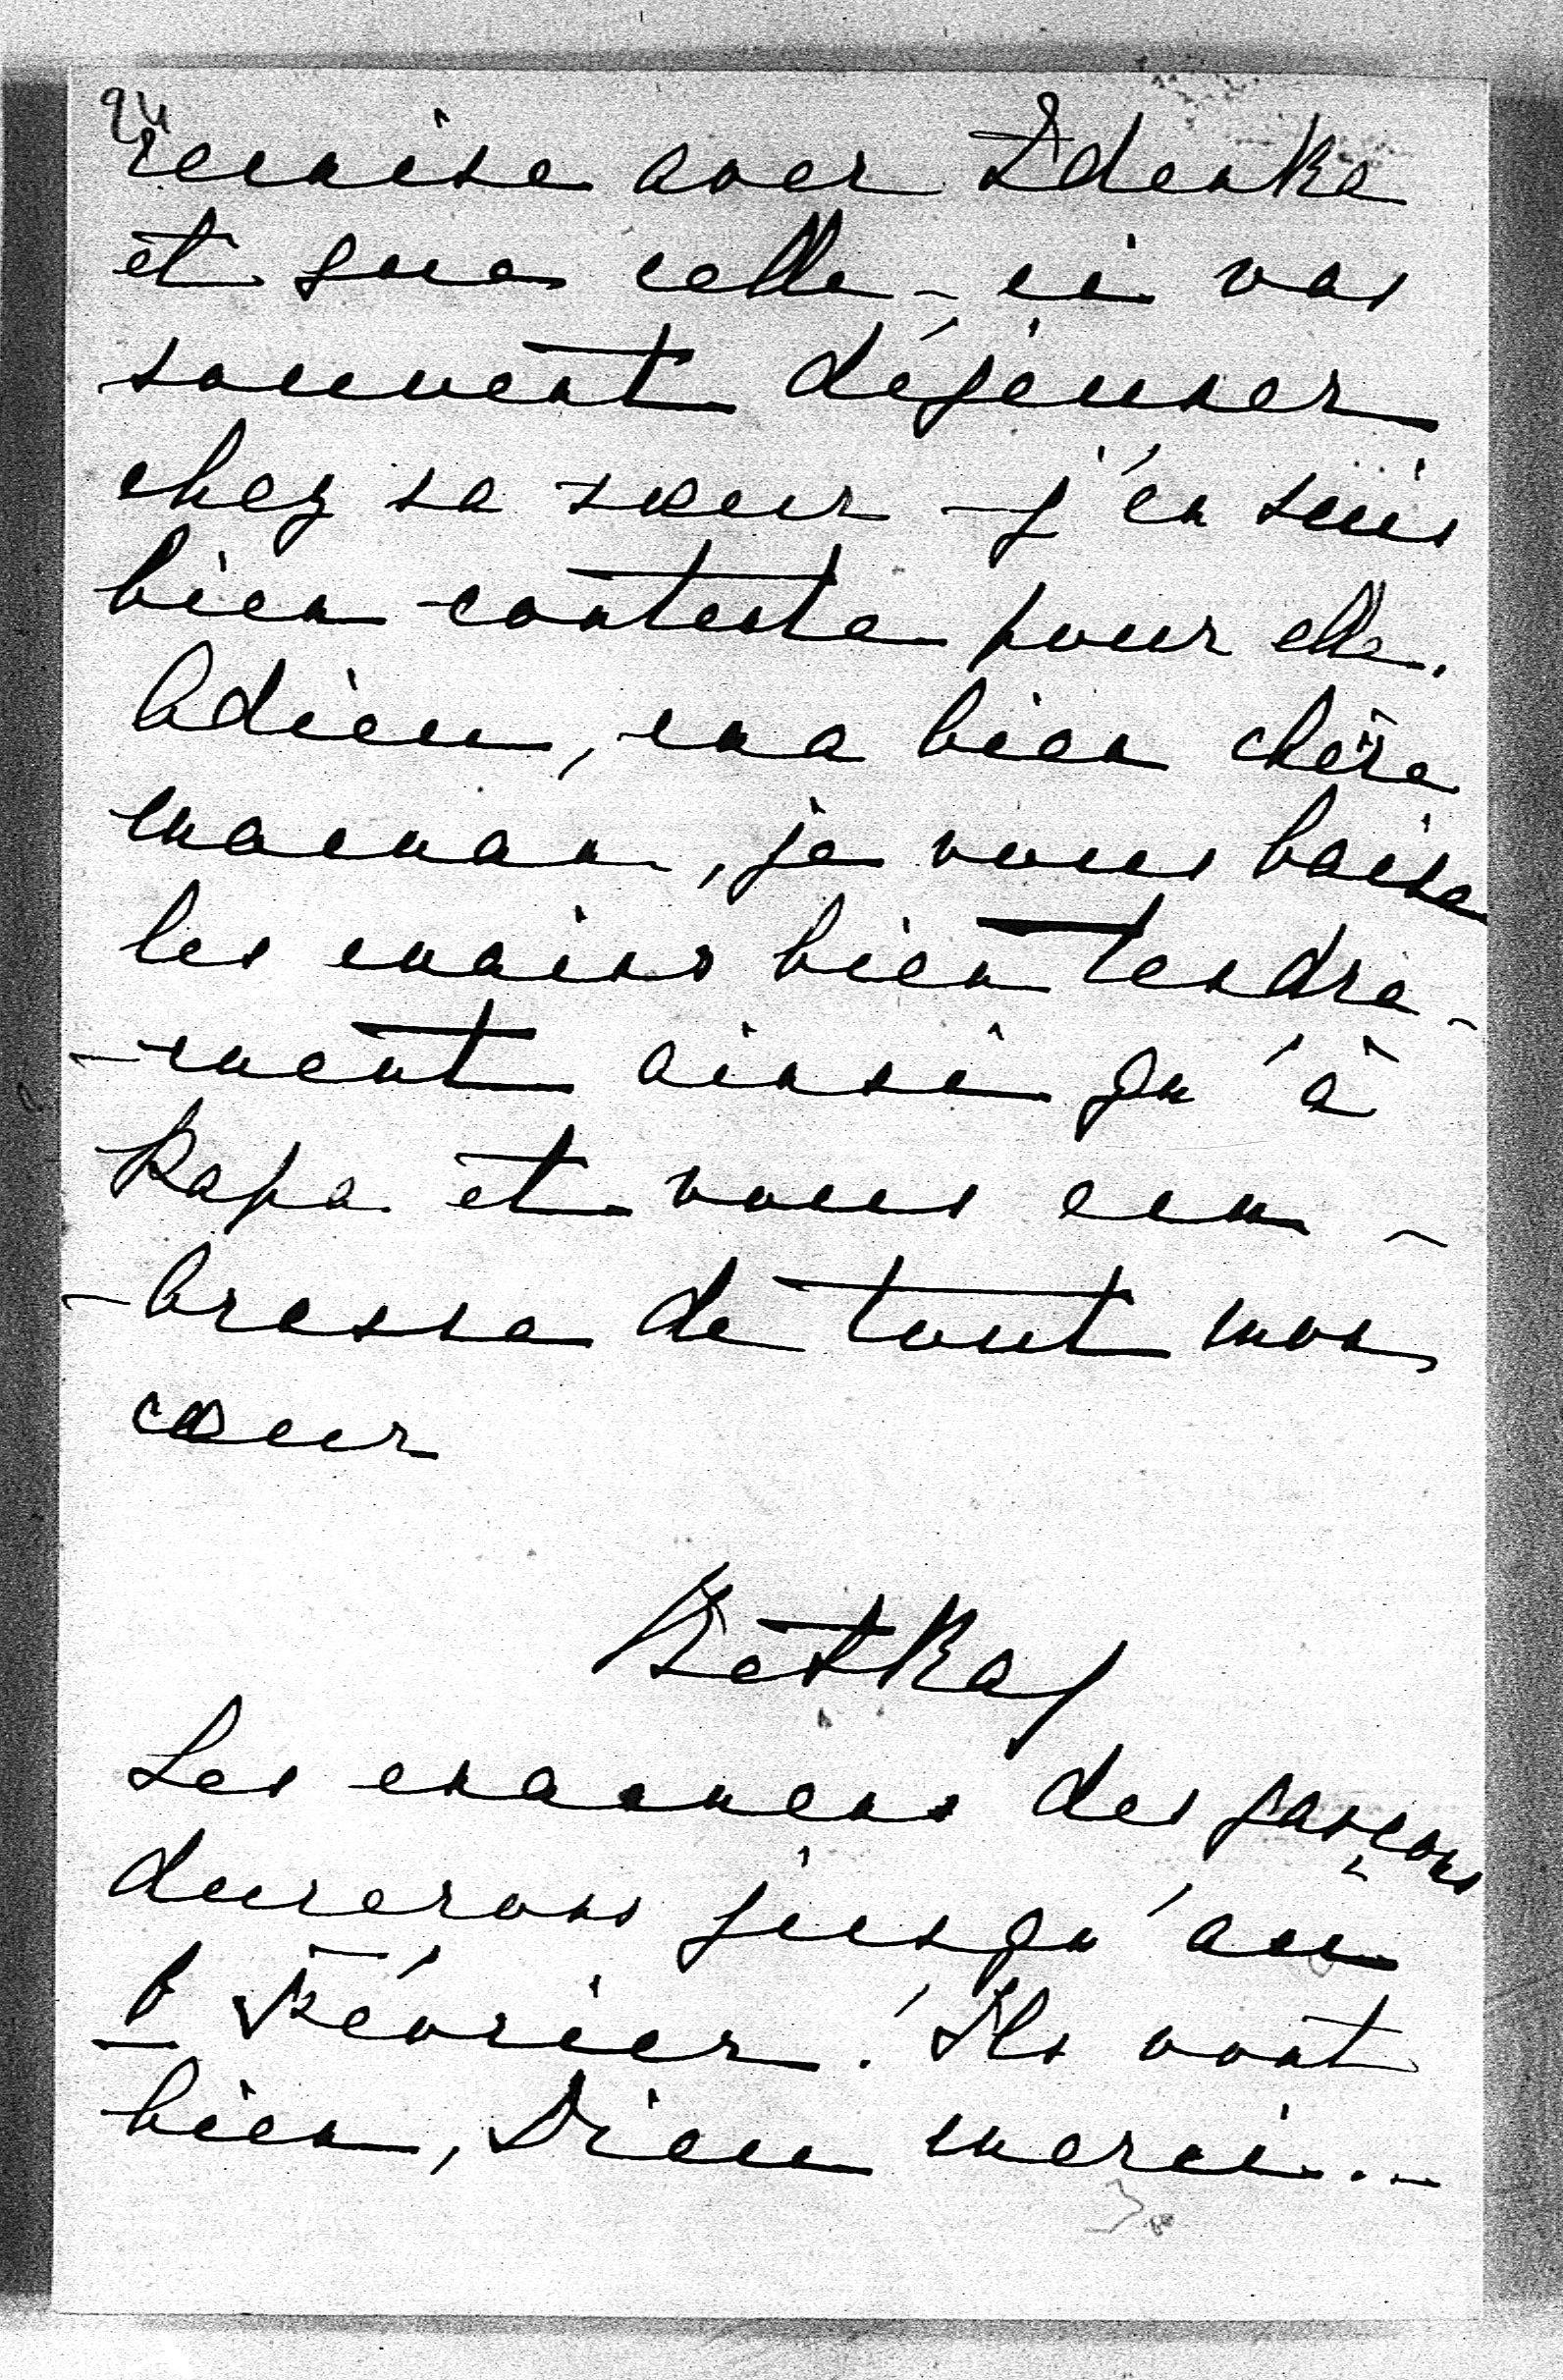 94
remise avec Zdenka
et que celle-ci vas
souvent déjeuner
chez sa sœur – j'en suis
bien contente pour elle.
Adieu, ma bien chère
maman, je vous baise
les mains bien tendre-
-ment ainsi qu'à
Papa et vous em-
-brasse de tout mon
cœur
Les examens des garçons
durerons jusqu'au
Février. Ils vont
bien, Dieu merci.–